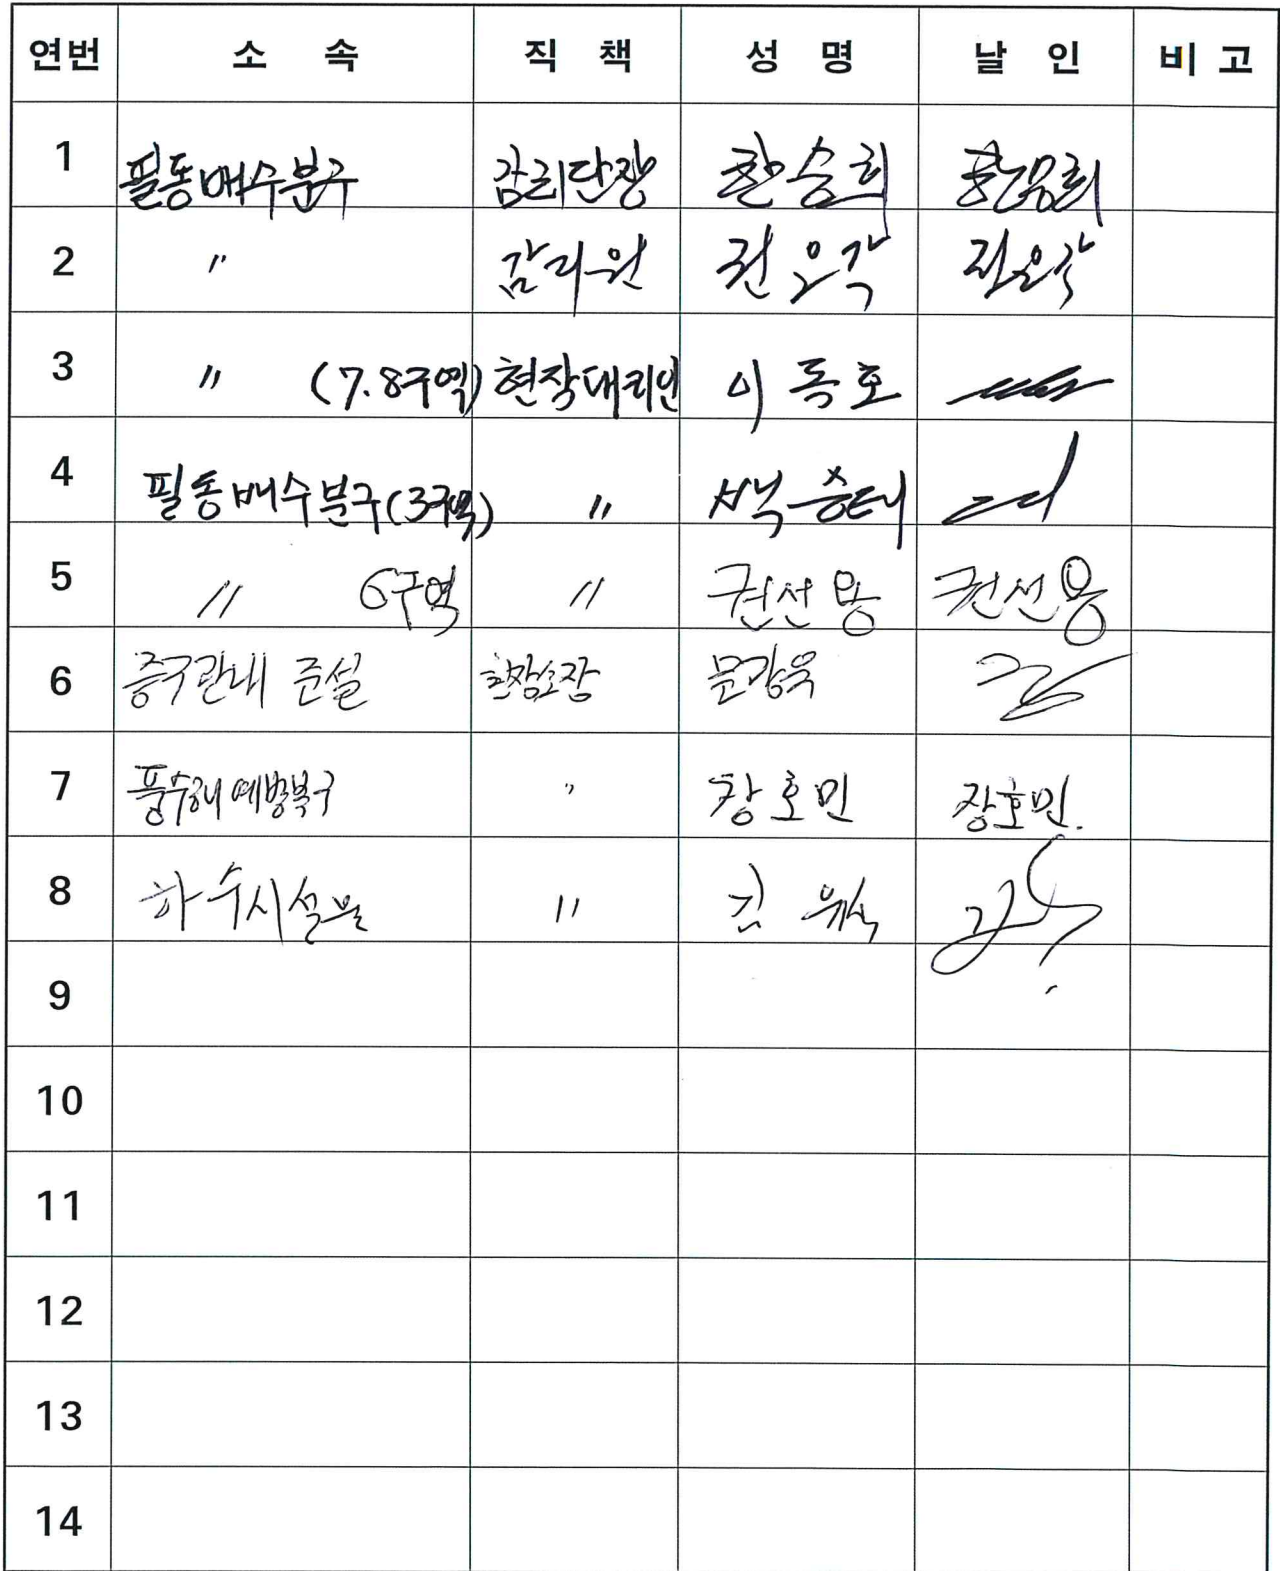 연번 소 속 직 책 성 명 날 인 비 고
1 필동배수분구 감리단장 한승희 한승희
2 〃 감리원 전오각
3 〃 (7.8구역) 현장대리인 이동호
4 필동배수분구(3구역) 〃 백승태
5 〃 6구역 〃 권선용 권선용
6 중구관내 준설 현장소장 문광욱
7 풍수해 예방복구 〃 장호민 장호민.
8 하수시설물 〃 김
9
10
11
12
13
14